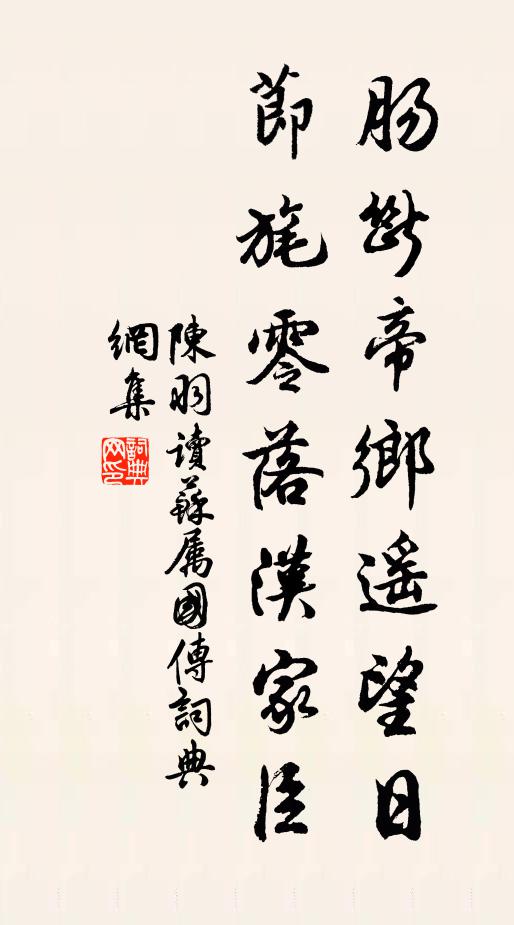 腸斷帝鄉遥望日
節旄零落漢家臣
陳羽讀蘇属國傳詞典
網集
詞典網印